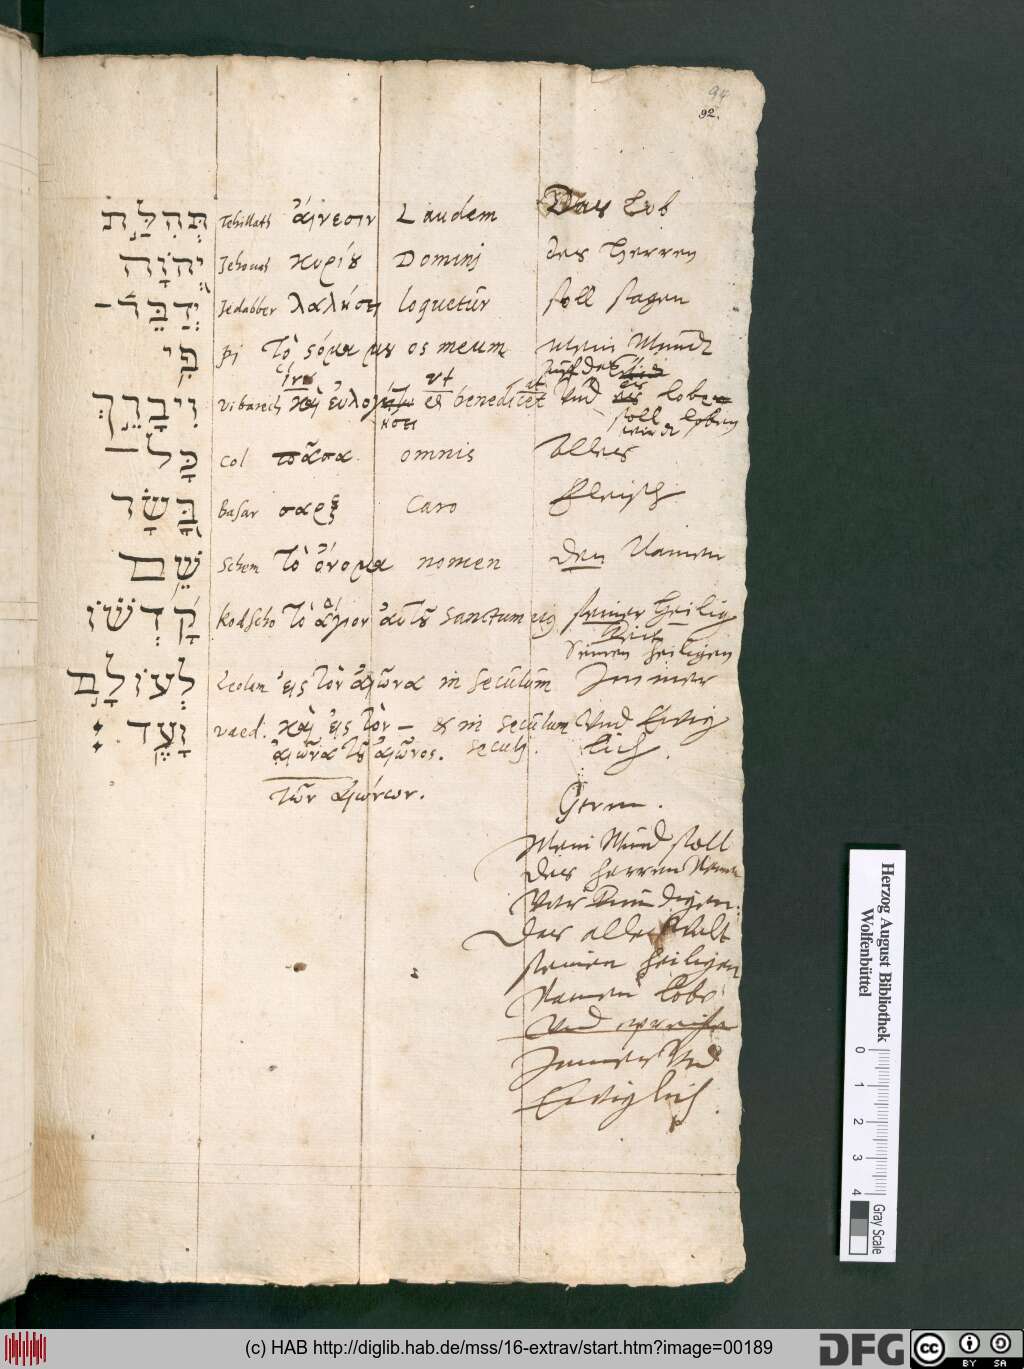 94
92.
תְּהִלַּת Tehillath αἴνεσιν Laudem Das Lob
יְהוָה Jehouah κυρίȣ Dominj des Herren
יְדַבֵּר־ Jedabber λαλήσει loquetur soll sagen
פִּי Pj τὸ στόμα μου os meum mein Mundt
ἵνα vt
וִיבָרֵךְ Vibarech καὶ εὐλογ et benedicet Vnd loben
ήσει soll loben
wirdt
כָּל־ Col πᾶσα omnis Alles
בָּשָׂר Basar σαρξ Caro Fleisch
שֵׁם Schem τὸ ὄνομα nomen den Namen
קָדְשׁוֹ Kodscho τὸ ἅγιον αὐτοῦ sanctum eius seiner Heilig
keit
Seinen heiligen
לְעוֹלָם Leolam εἰς τὸν αἰῶνα in seculum Immer
וָעֶד׃ vaed. καὶ εἰς τὸν – & in seculum Vnd Ewig
αἰῶνα τοῦ αἰῶνος. seculj. lich.
τῶν αἰώνων.
Germ.
Mein Mund soll
des Herren Namen
Verkündigen:
Das alle Welt
seinen heiligen
Namen lobe
Vnd preise
Immer Vnd
Ewiglich.
Herzog August Bibliothek
Wolfenbüttel
0 1 2 3 4
Gray Scale
(c) HAB http://diglib.hab.de/mss/16-extrav/start.htm?image=00189
DFG
cc BY SA